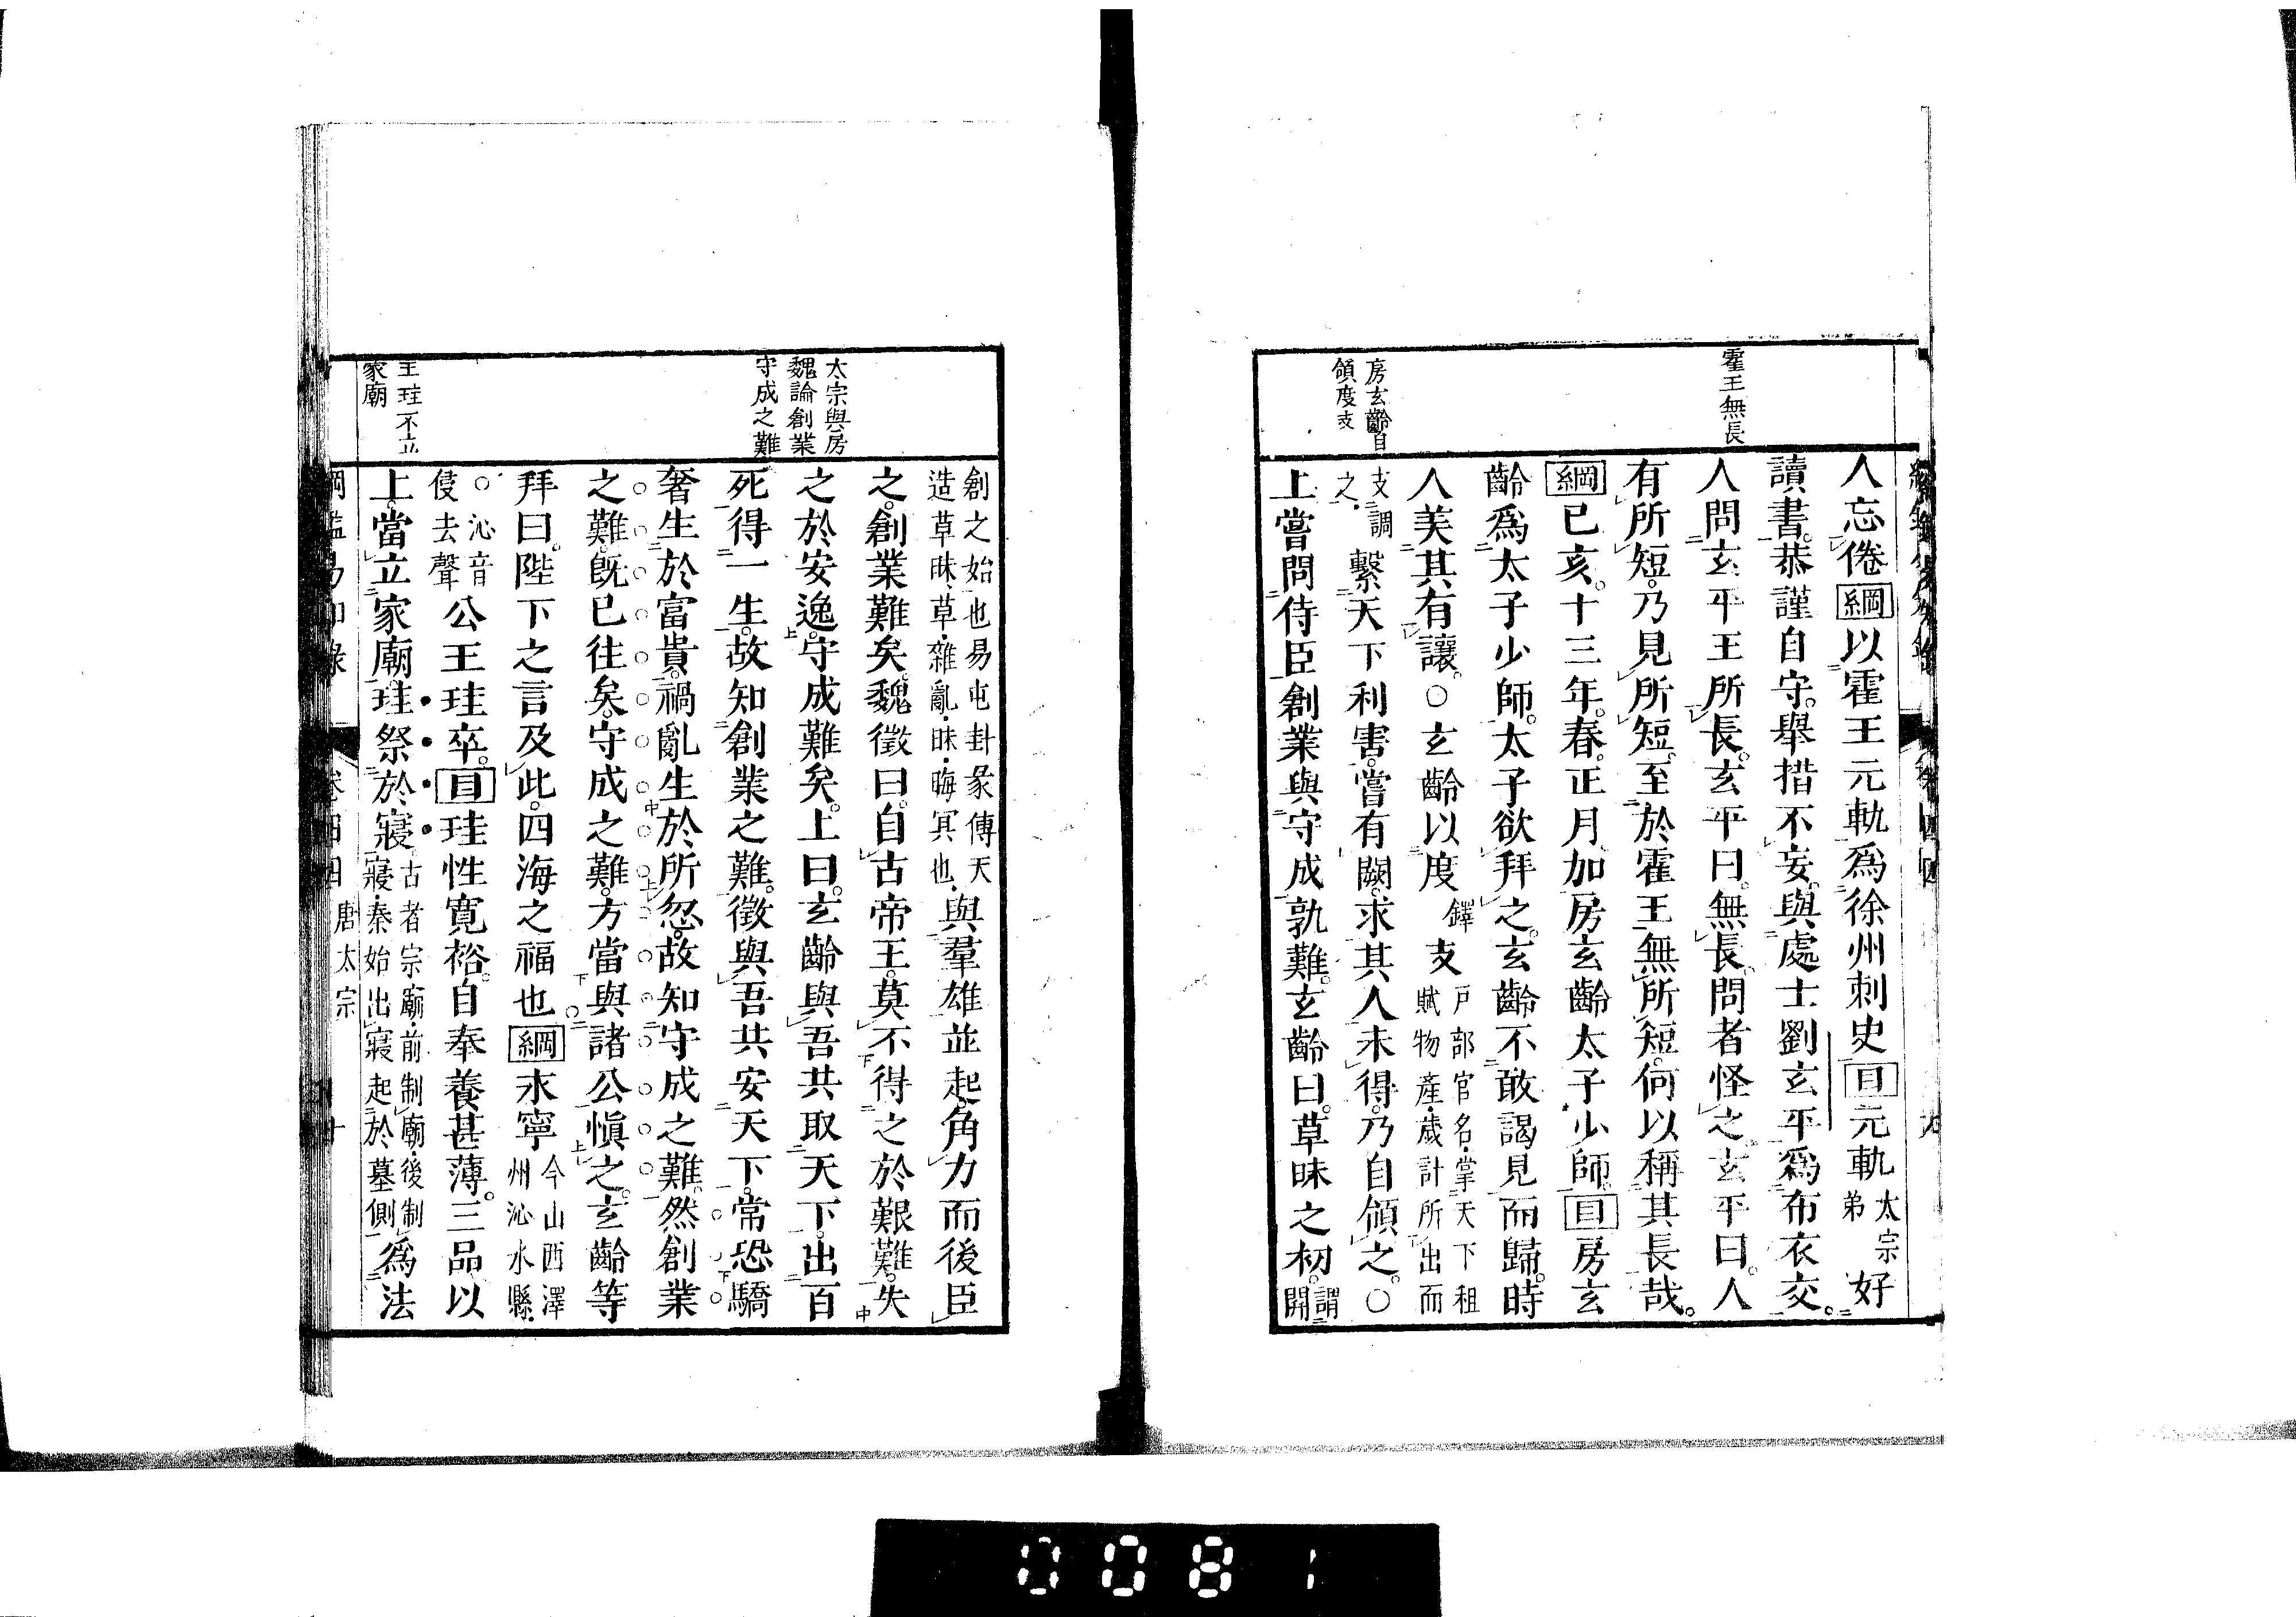 霍王無長
房玄齡自
領度支
人忘倦綱以霍王元軌爲徐州刺史目元軌太宗弟好
讀書。恭謹自守。舉措不妄。與處士劉玄平爲布衣交。
人問玄平王所長。玄平曰。無長。問者怪之。玄平曰。人
有所短。乃見所短。至於霍王無所短。何以稱其長哉。
綱已亥。十三年。春。正月。加房玄齡太子少師。目房玄
齡爲太子少師。太子欲拜之。玄齡不敢謁見而歸。時
人美其有讓。○玄齡以度鐸支戸部官名。掌天下租賦物產。歲計所出而
支調之。繫天下利害。嘗有闕。求其人未得。乃自領之。○
上嘗問侍臣創業與守成孰難。玄齡曰。草昧之初。謂開
太宗與房
魏論創業
守成之難
王珪不立
家廟
創之始也易屯卦彖傳天造草昧、草、雜亂、昧、晦冥也、與羣雄並起。角力而後臣
之。創業難矣。魏徵曰。自古帝王。莫不得之於艱難。失
之於安逸。守成難矣。上曰。玄齡與吾共取天下。出百
死得一生。故知創業之難。徵與吾共安天下。常恐驕
奢生於富貴。禍亂生於所忽。故知守成之難。然創業
之難。既已往矣。守成之難。方當與諸公愼之。玄齡等
拜曰。陛下之言及此。四海之福也綱永寧今山西澤州沁水縣、
○沁音侵去聲公王珪卒。目珪性寛裕。自奉養甚薄。三品以
上。當立家廟。珪祭於寢。古者宗廟、前制廟、後制寢、秦始出寢起於墓側爲法
卷四四
唐太宗
十